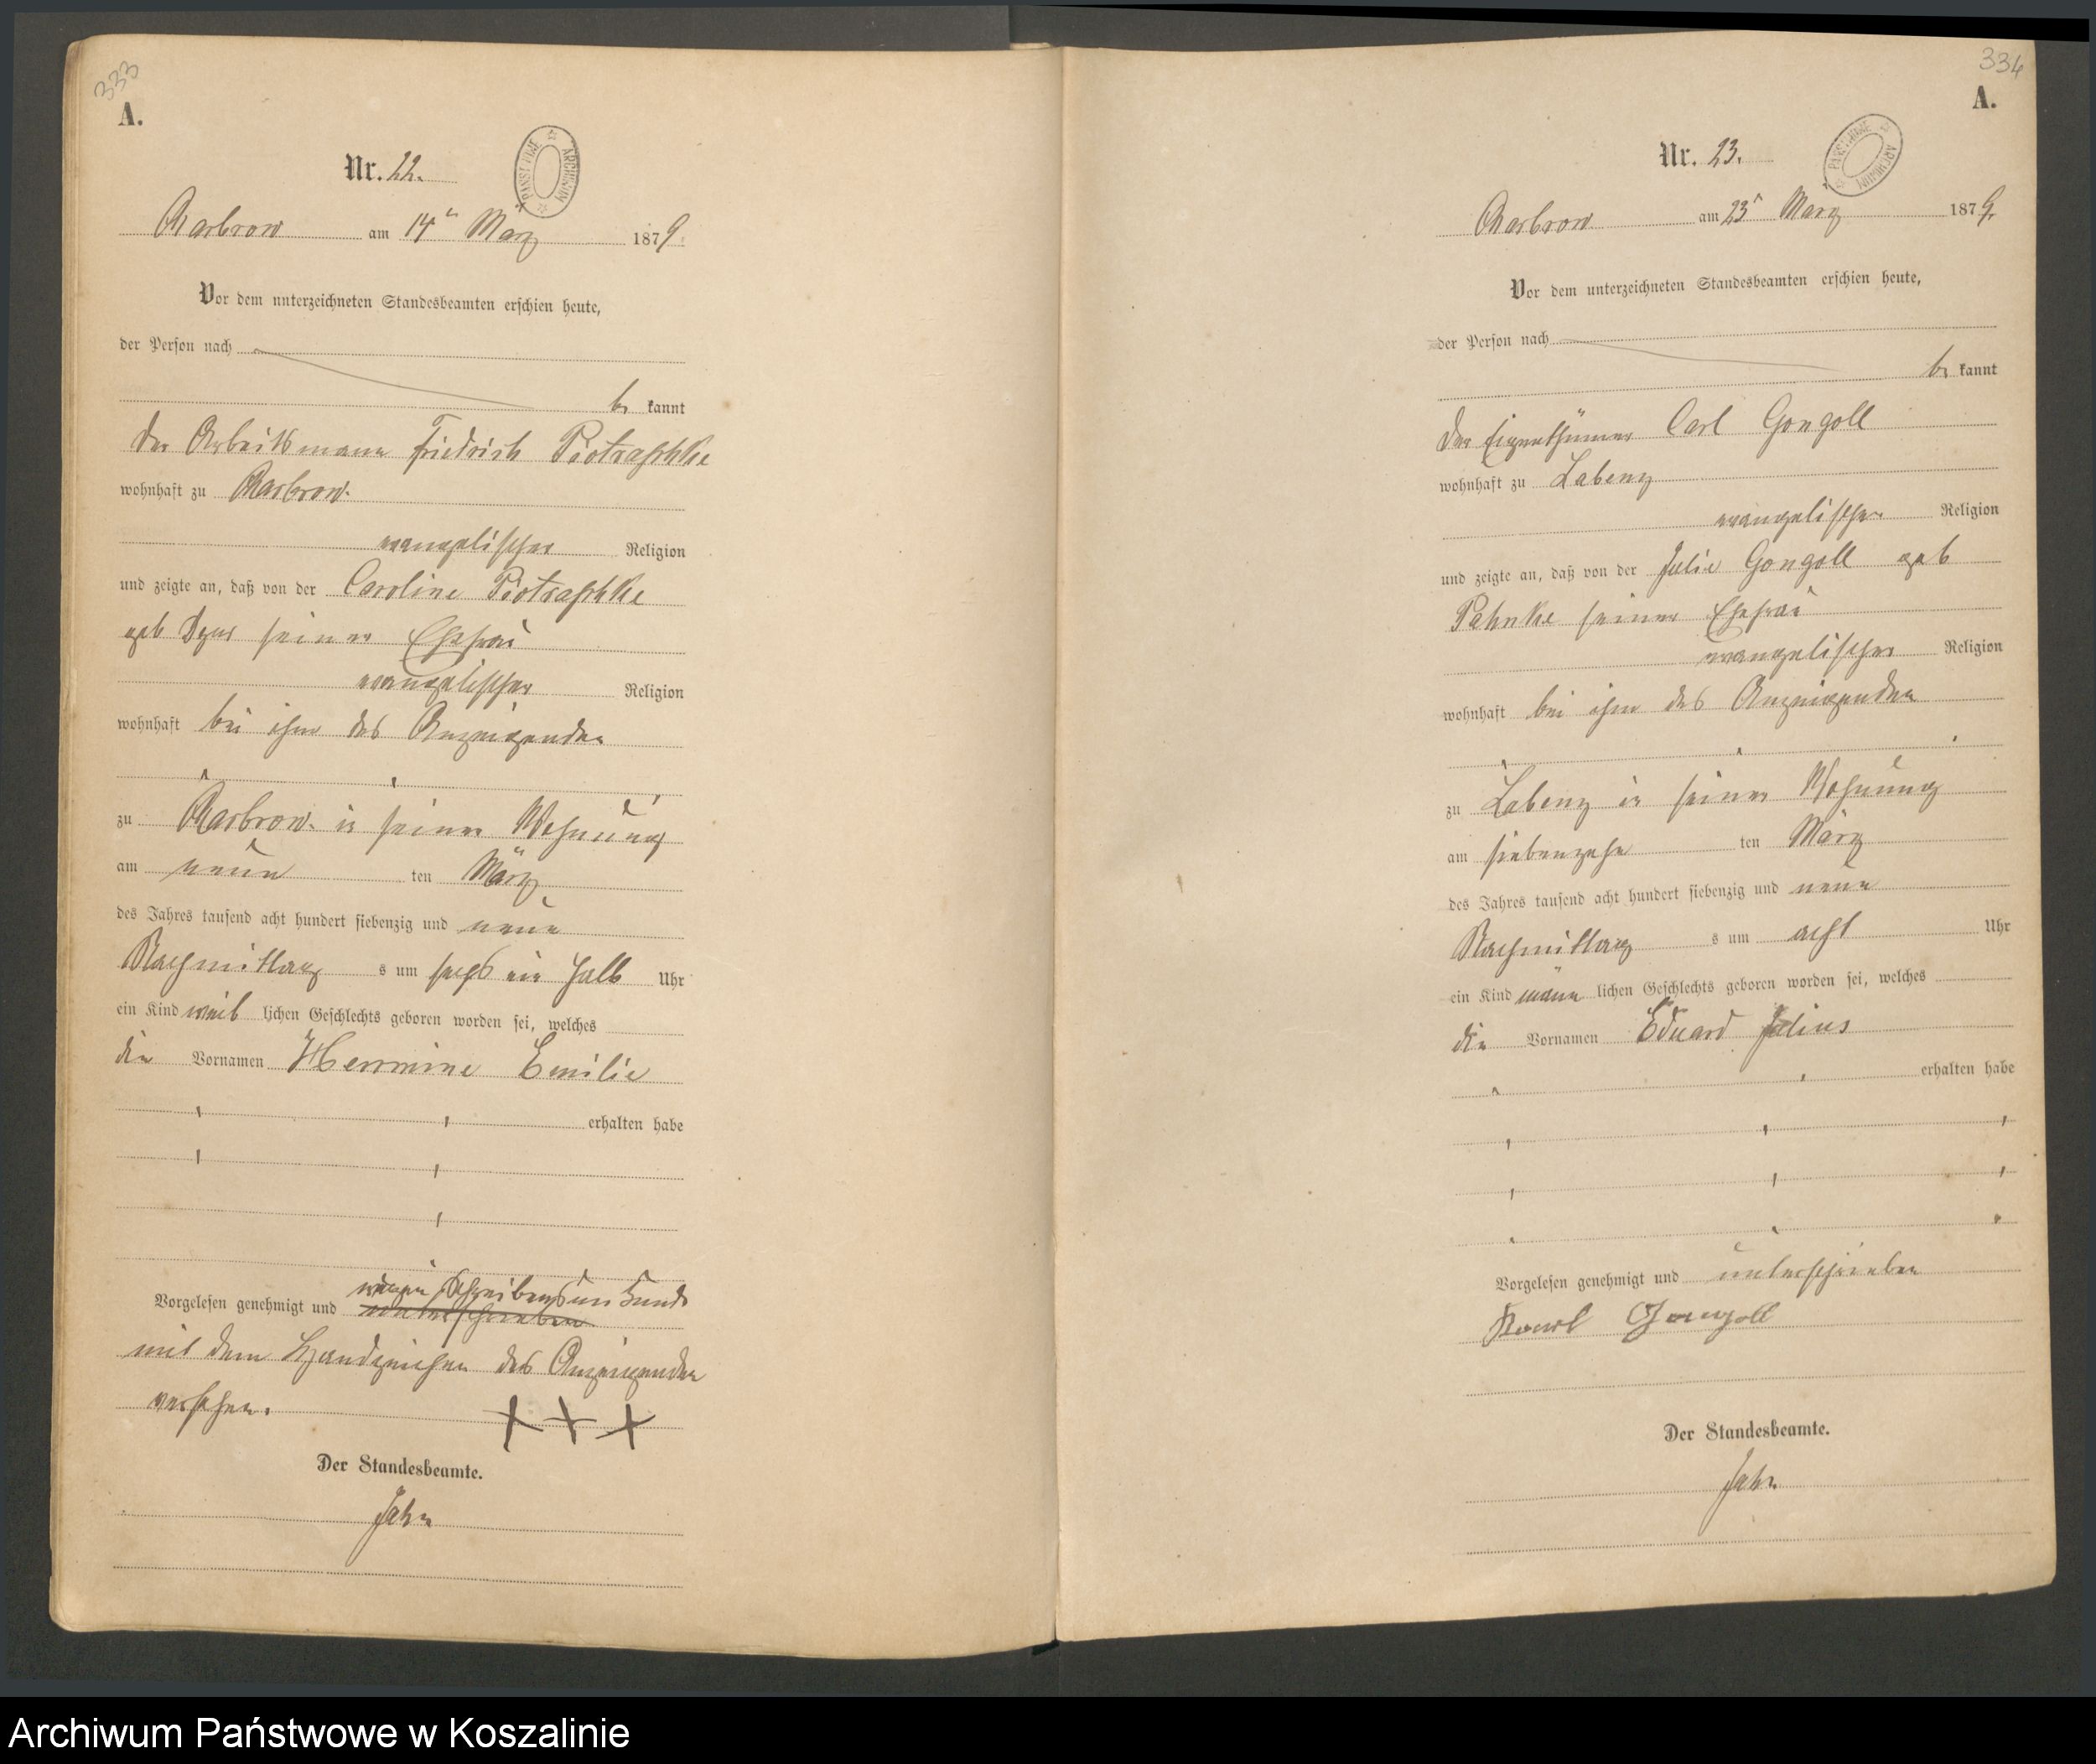 333
A.
Nr. 22.
ARCHIWUM PAŃSTWOWE
Charbrow am 14n März 1879.
Vor dem unterzeichneten Standesbeamten erschien heute,
der Person nach
be kannt
der Arbeitsmann Friedrich Piotraschke
wohnhaft zu Charbrow.
evangelischer Religion
und zeigte an, daß von der Caroline Piotraschke
geb seiner Ehefrau
evangelischer Religion
wohnhaft bei ihm des Anzeigenden
zu Charbrow in seiner Wohnung
am neun ten März
des Jahres tausend acht hundert siebenzig und neun
Nachmittag s um sechs ein halb Uhr
ein Kind weib lichen Geschlechts geboren worden sei, welches
die Vornamen Hermine Emilie
erhalten habe
Vorgelesen genehmigt und wegen Schreibensunkunde
unterschrieben
mit dem Handzeichen des Anzeigenden
versehen. +++
Der Standesbeamte.
Jahn
334
A.
Nr. 23.
ARCHIWUM PAŃSTWOWE
Charbrow am 23t März 1879.
Vor dem unterzeichneten Standesbeamten erschien heute,
der Person nach
be kannt
Der Eigenthümer Carl Gongoll
wohnhaft zu Labenz
evangelischer Religion
und zeigte an, daß von der Julie Gongoll geb
Pahnke seiner Ehefrau
evangelischer Religion
wohnhaft bei ihm des Anzeigenden
zu Labenz in seiner Wohnung
am siebenzehn ten März
des Jahres tausend acht hundert siebenzig und neun
Nachmittag s um acht Uhr
ein Kind männ lichen Geschlechts geboren worden sei, welches
die Vornamen Eduard Julius
erhalten habe
Vorgelesen genehmigt und unterschrieben
Karl Gongoll
Der Standesbeamte.
Jahn
Archiwum Państwowe w Koszalinie